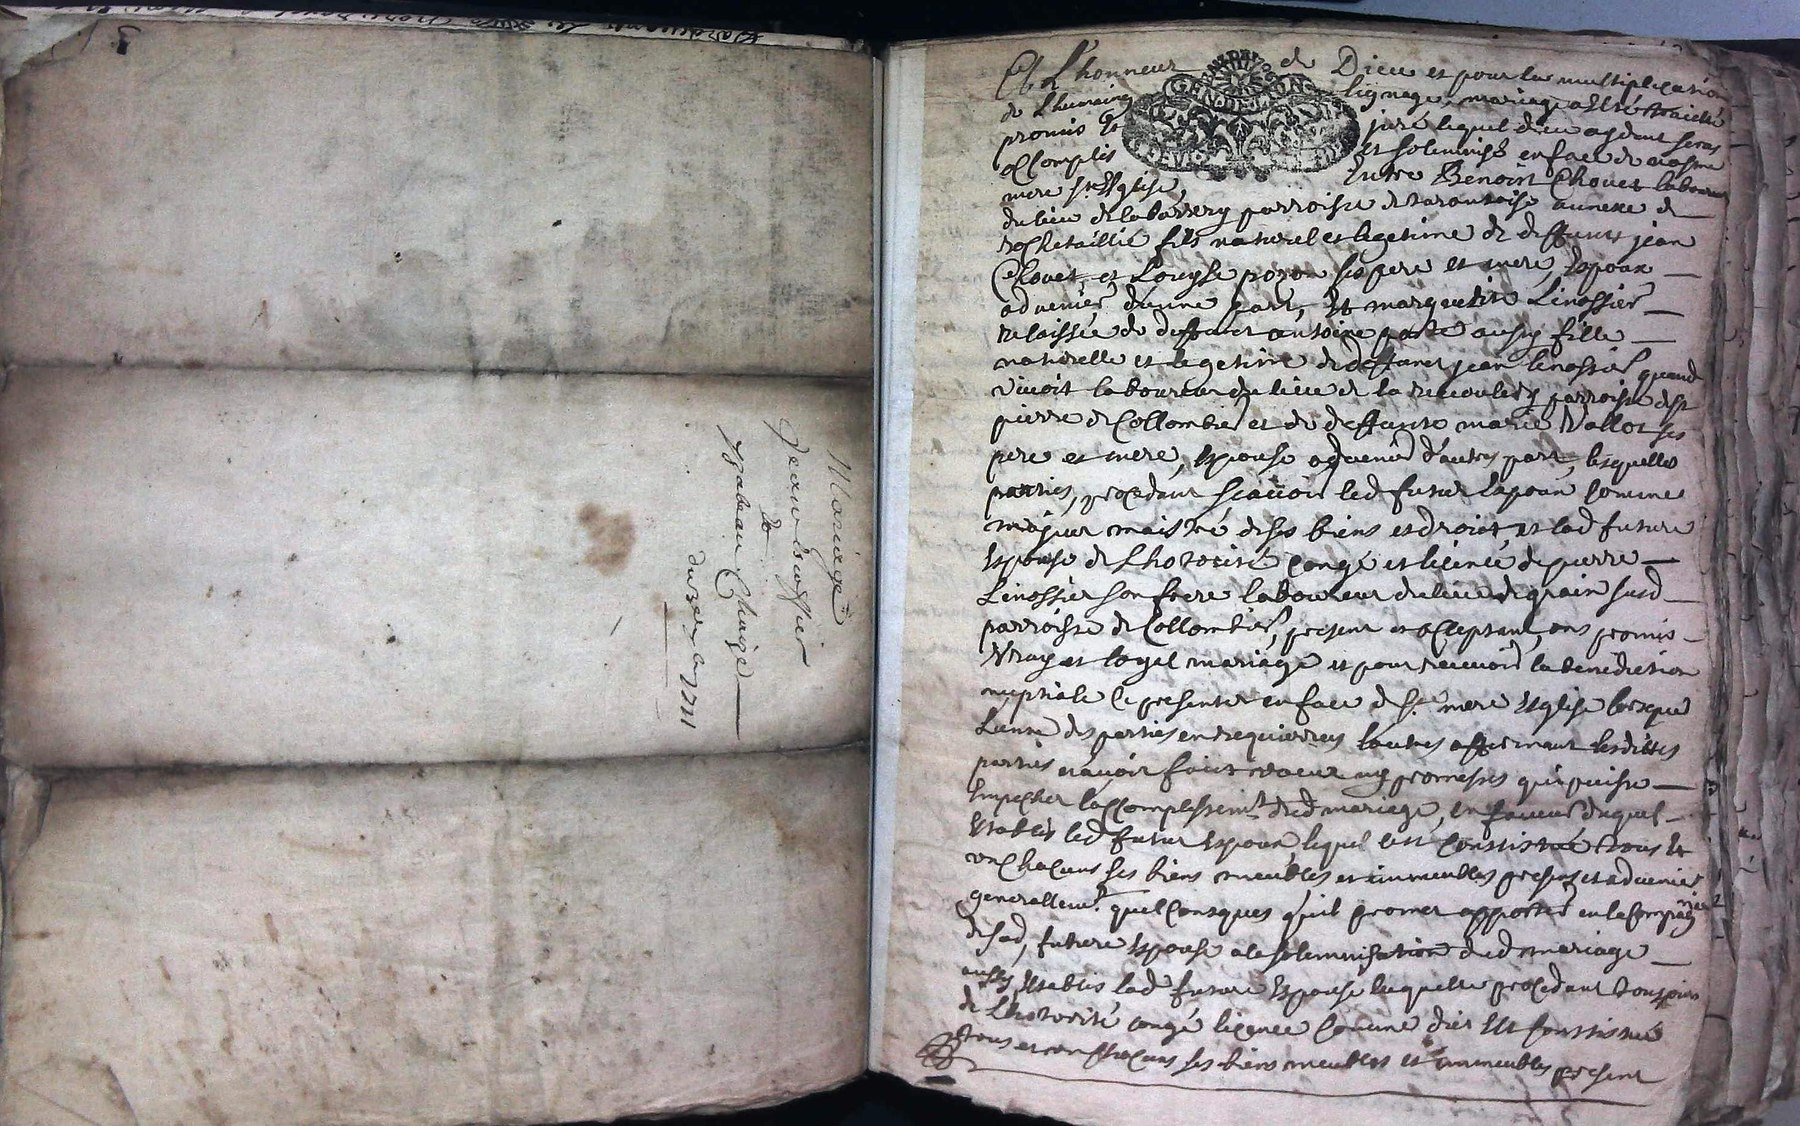 Mariage
Jean Linossier
&
Ysabeau Chaize
du 1711
A L'honneur de Dieu et pour la multiplication
de Lhumaing lignage, mariage a esté traicté
promis & juré lequel dieu aydant sera
accomplis et solemnisé en face de nostre
mere ste Esglise, Entre Benoist Chovet laboureur
GEN·DE·LION
du lieu de parroisse de tarantaise annexe de
rochetaillié fils naturel et legetime de deffunts jean
Chovet et Louyse ses pere et mere, Espoux
advenir d'une part, Et marguerite Linossier
relaissée de deffunct antoine aussy fille
naturelle et legetime de deffunct jean linossier quand
vivoit laboureur du lieu de la parroisse de st
pierre de Collombier et de deffunte marie Vallot ses
pere et mere, Espouse advenir d'autre part, lesquelles
parties, procedant scavoir led futur Espoux comme
majeur maistre de ses biens et droict, et lad future
Espouse de Lhotorité Congé et licence de pierre
Linossier son frere laboureur du lieu de grain susd
parroisse de Collombier, present et acceptant, ont promis
Vray et loyal mariage et pour recevoir la benediction
nuptiale se presenter en face de ste mere Esglise lorsque
L'une des parties en requierera l'autres affirmant lesdittes
parties n'avoir faict voeux ny promesses qui puisse
Empescher laccomplissemt dud mariage, en faveur duquel
Establis led futur Espoux lequel c'est Constitué tous &
un chacuns ses biens meubles et immeubles presens et advenir
generallemt quelconsques qu'il promet apporter en la compagnie
de sad, future Espouse a la solemnisation dud mariage
aussy Establis lad future Espouse laquelle procedant tousjours
de Lhotorité congé licence comme dict Est constitué
tous et un chacuns ses biens meubles et immeubles present